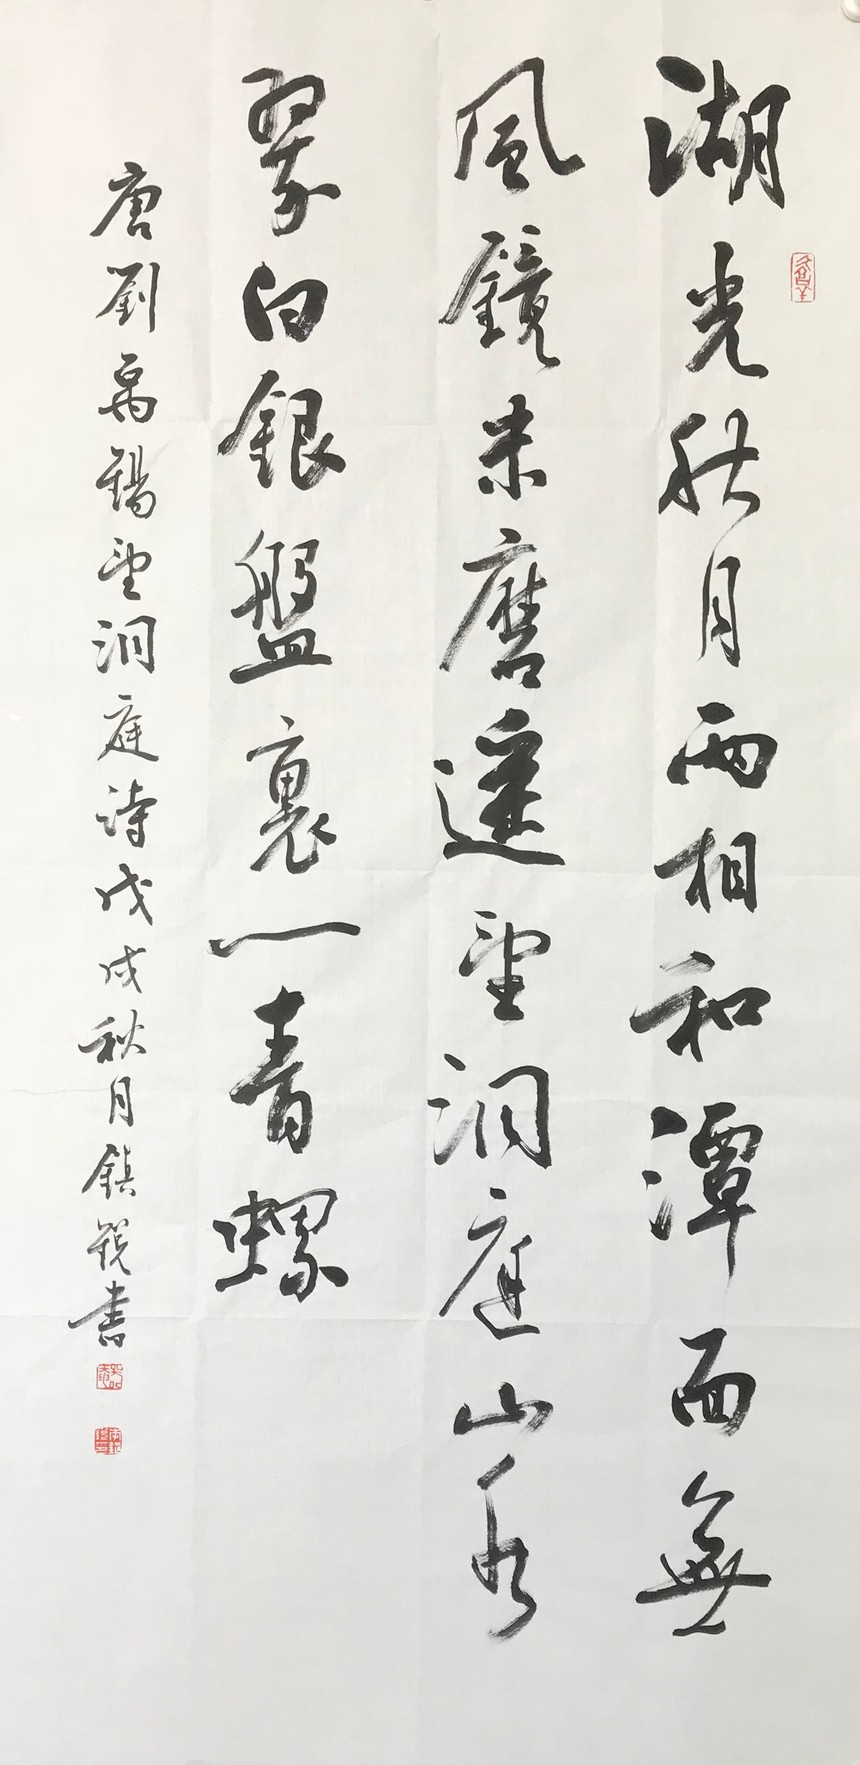 湖光秋月兩相和潭面無
風鏡未磨遙望洞庭山水
翠白銀盤裏一青螺
唐劉禹錫望洞庭詩戊戌秋月鎮書